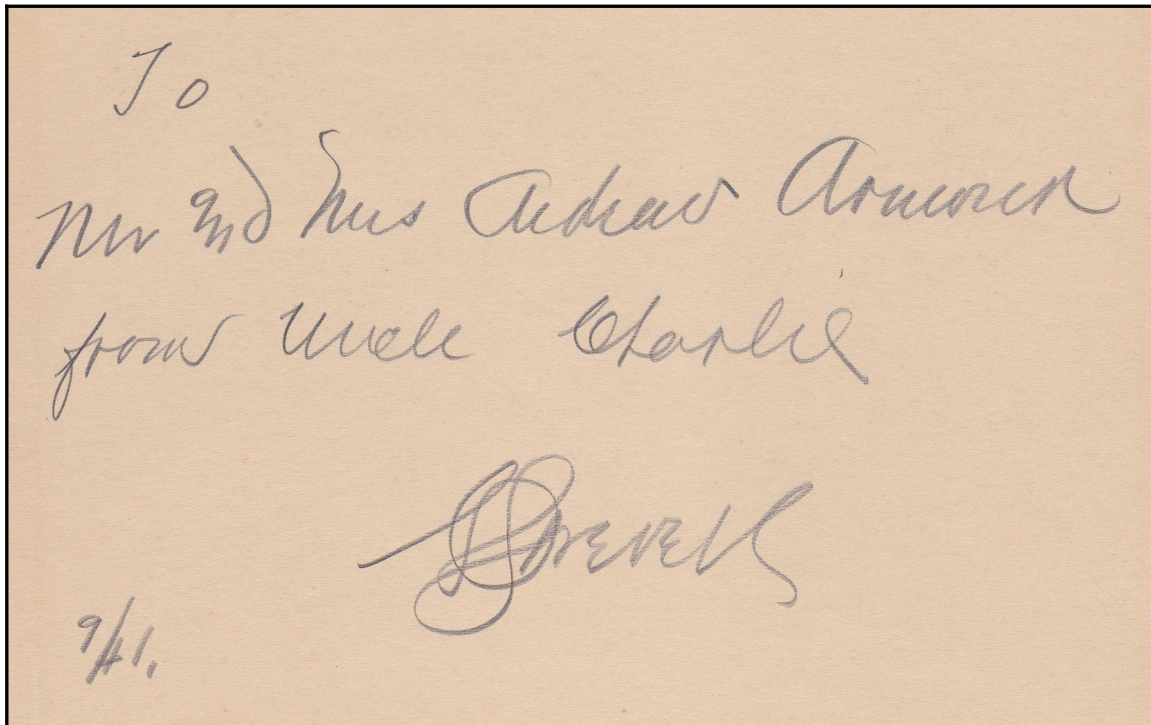 To
Mr and Mrs Andrew
from Uncle Charlie
9/41.